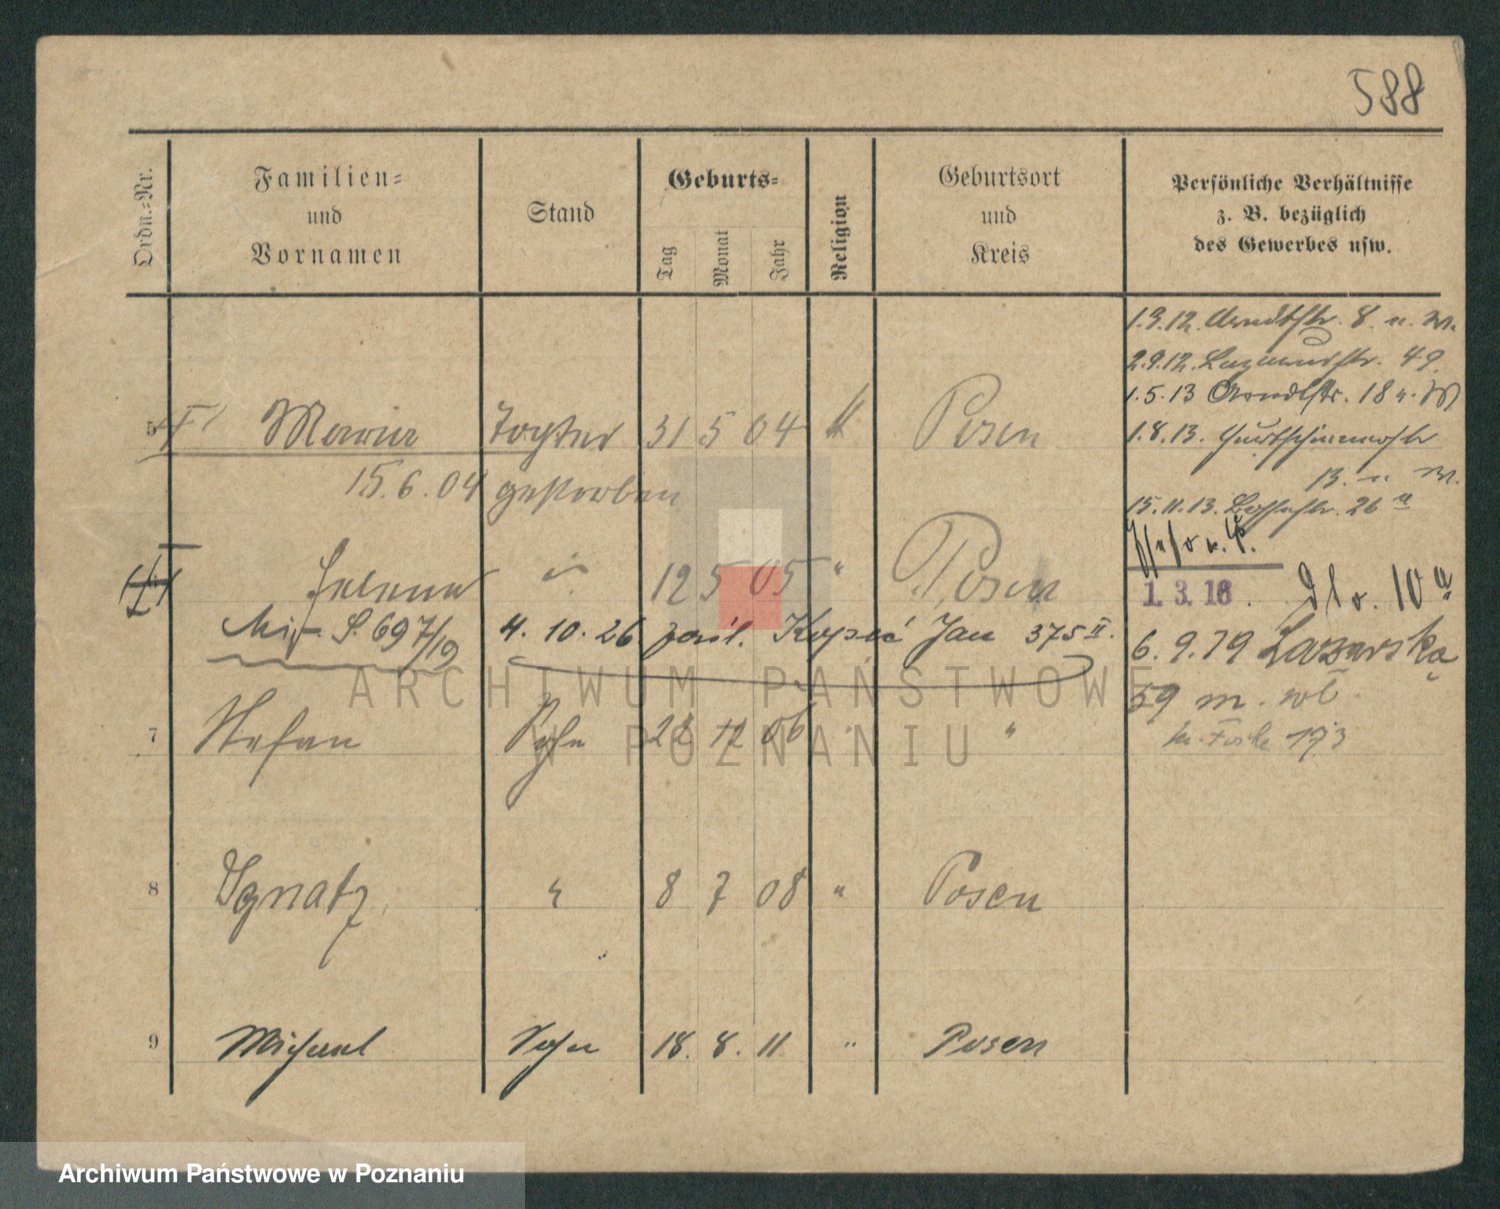 588
Ordn.-Nr.
Familien-
und
Vornamen
Stand
Geburts-
Tag
Monat
Jahr
Religion
Geburtsort
und
Kreis
Persönliche Verhältnisse
z. B. bezüglich
des Gewerbes usw.
1.3.12. Arndtstr. 8. u. W.
2.9.12. Lazarusstr. 49.
1.5.13 Arndtstr. 18 u. W
5 Maria Tochter 31 5 04 k Posen
1.8.13.
13. u. W.
15.6.04 gestorben
15.11.13. 26 a
Helena " 12 5 05 " Posen
1.3.16. Dto. 10 a
S. 697/19 4.10.26 zaśl. Jan 375 II.
6.9.19 Łazarska
59 m. wł.
7 Stefan Sohn 12 06 " "
173
8 Ignatz " 8 7 08 " Posen
9 Michael Sohn 18. 8. 11 " Posen
ARCHIWUM PAŃSTWOWE
W POZNANIU
Archiwum Państwowe w Poznaniu